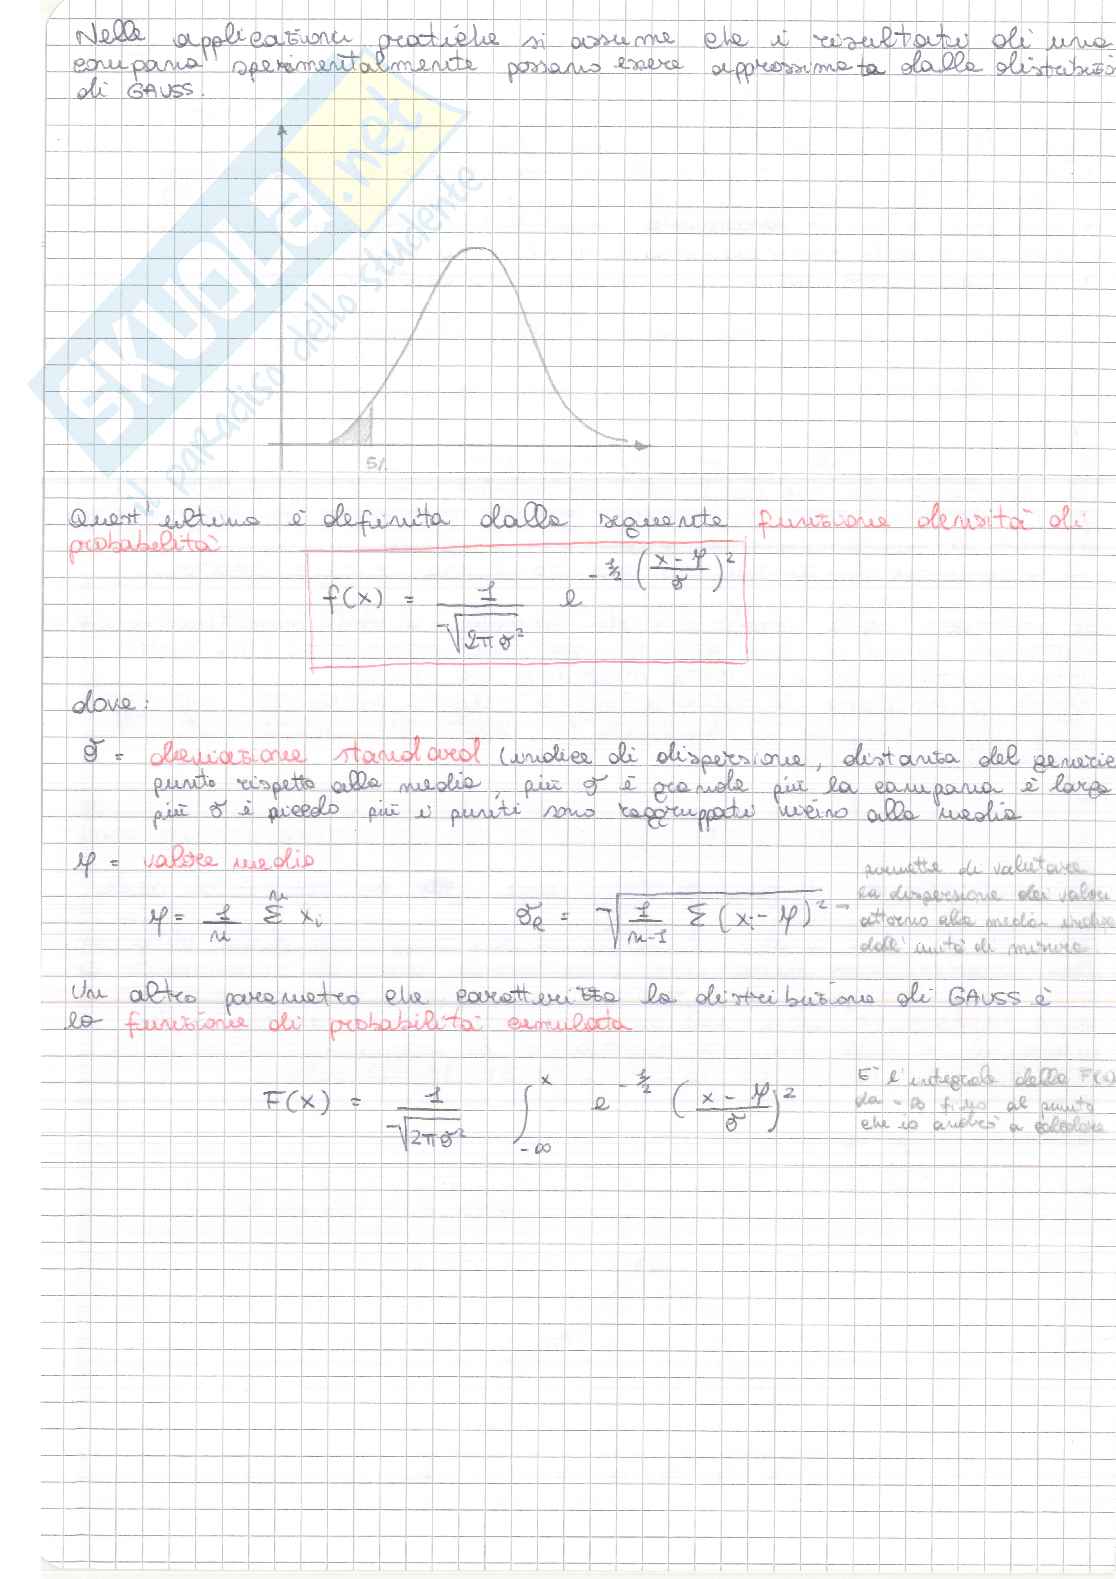 Nelle applicazioni pratiche si assume che i risultati di una
campana sperimentalmente possano essere approssimata dalla distribuzio
di GAUSS.
SKUOLA.net
il paradiso dello studente
5%
Quest'ultima è definita dalla seguente funzione densità di
probabilità
f(x) = 1/√(2πσ²) e^(-1/2 ((x-μ)/σ)²)
dove:
σ = deviazione standard (indice di dispersione, distanza del generic
punto rispetto alla media, più σ è grande più la campana è larga
più σ è piccolo più i punti sono raggruppati vicino alla media
μ = valore medio
μ = 1/n Σⁿ xᵢ
σ_R = √(1/(n-1) Σ(xᵢ-μ)²)
permette di valutare
la dispersione dei valori
attorno alla media
dell'unità di misura
Un altro parametro che caratterizza la distribuzione di GAUSS è
la funzione di probabilità cumulata
F(x) = 1/√(2πσ²) ∫_{-∞}^{x} e^(-1/2 ((x-μ)/σ)²)
E' l'integrale della F(x)
da -∞ fino al punto
che io andrò a calcolare